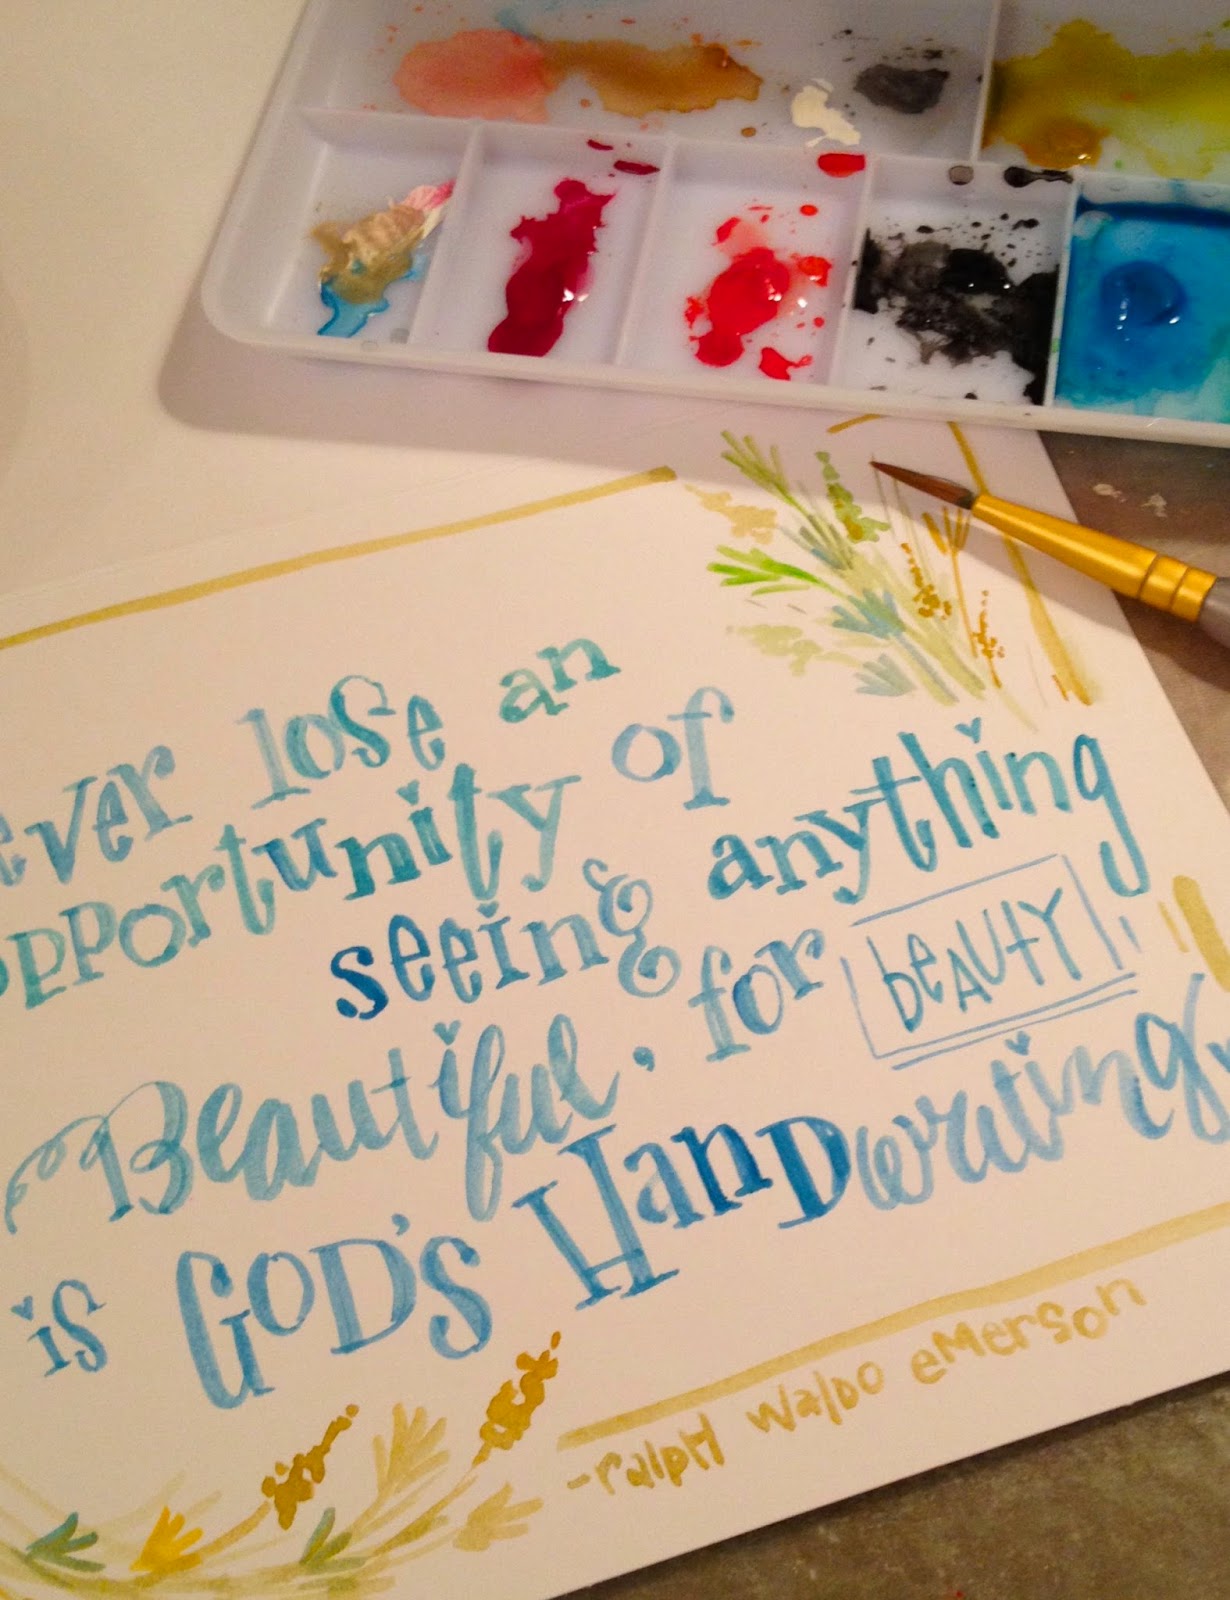 ever lose an
opportunity of
seeing anything
Beautiful, for beAUTY
is GOD'S HanDwriting
-ralpH walDo emerson